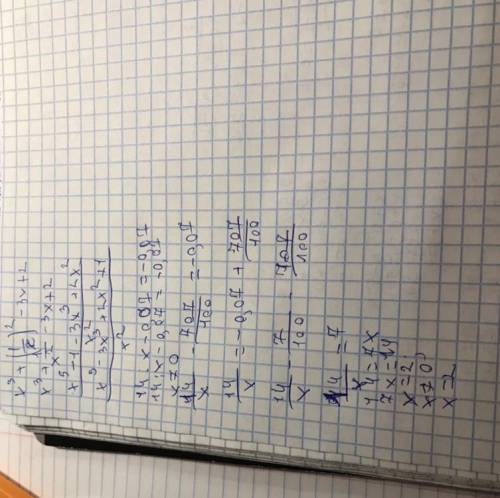 x³ + (1/x)² - 3x + 2
x³ + 1/x² - 3x + 2
x⁵ + 1 - 3x³ + 2x²
x⁵ - 3x³ + 2x² + 1
x²
14 : x - 0,07 = -0,07
14 : x - 0,07 = -0,07
x ≠ 0
14/x - 707/100 = -0,07
14/x = -0,07 + 707/100
14/x - 7/100 707/100
14/x = 7
14 = 7x
7x = 14
x = 2
x ≠ 0
x = 2